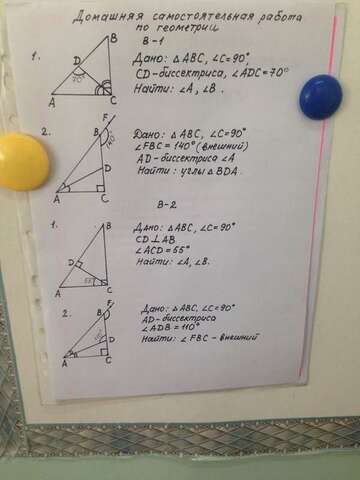 Домашняя самостоятельная работа
по геометрии
В-1
1.
Дано: △ABC, ∠C=90°,
CD-биссектриса, ∠ADC=70°
Найти: ∠A, ∠B.
B
D
70°
A
C
2.
Дано: △ABC, ∠C=90°
∠FBC=140° (внешний)
AD-биссектриса ∠A
Найти: углы △BDA.
F
B
140°
D
A
C
В-2
1.
Дано: △ABC, ∠C=90°
CD⊥AB
∠ACD=55°
Найти: ∠A, ∠B.
B
D
55°
A
C
2.
Дано: △ABC, ∠C=90°
AD-биссектриса
∠ADB=110°
Найти: ∠FBC-внешний
F
B
110°
D
A
C